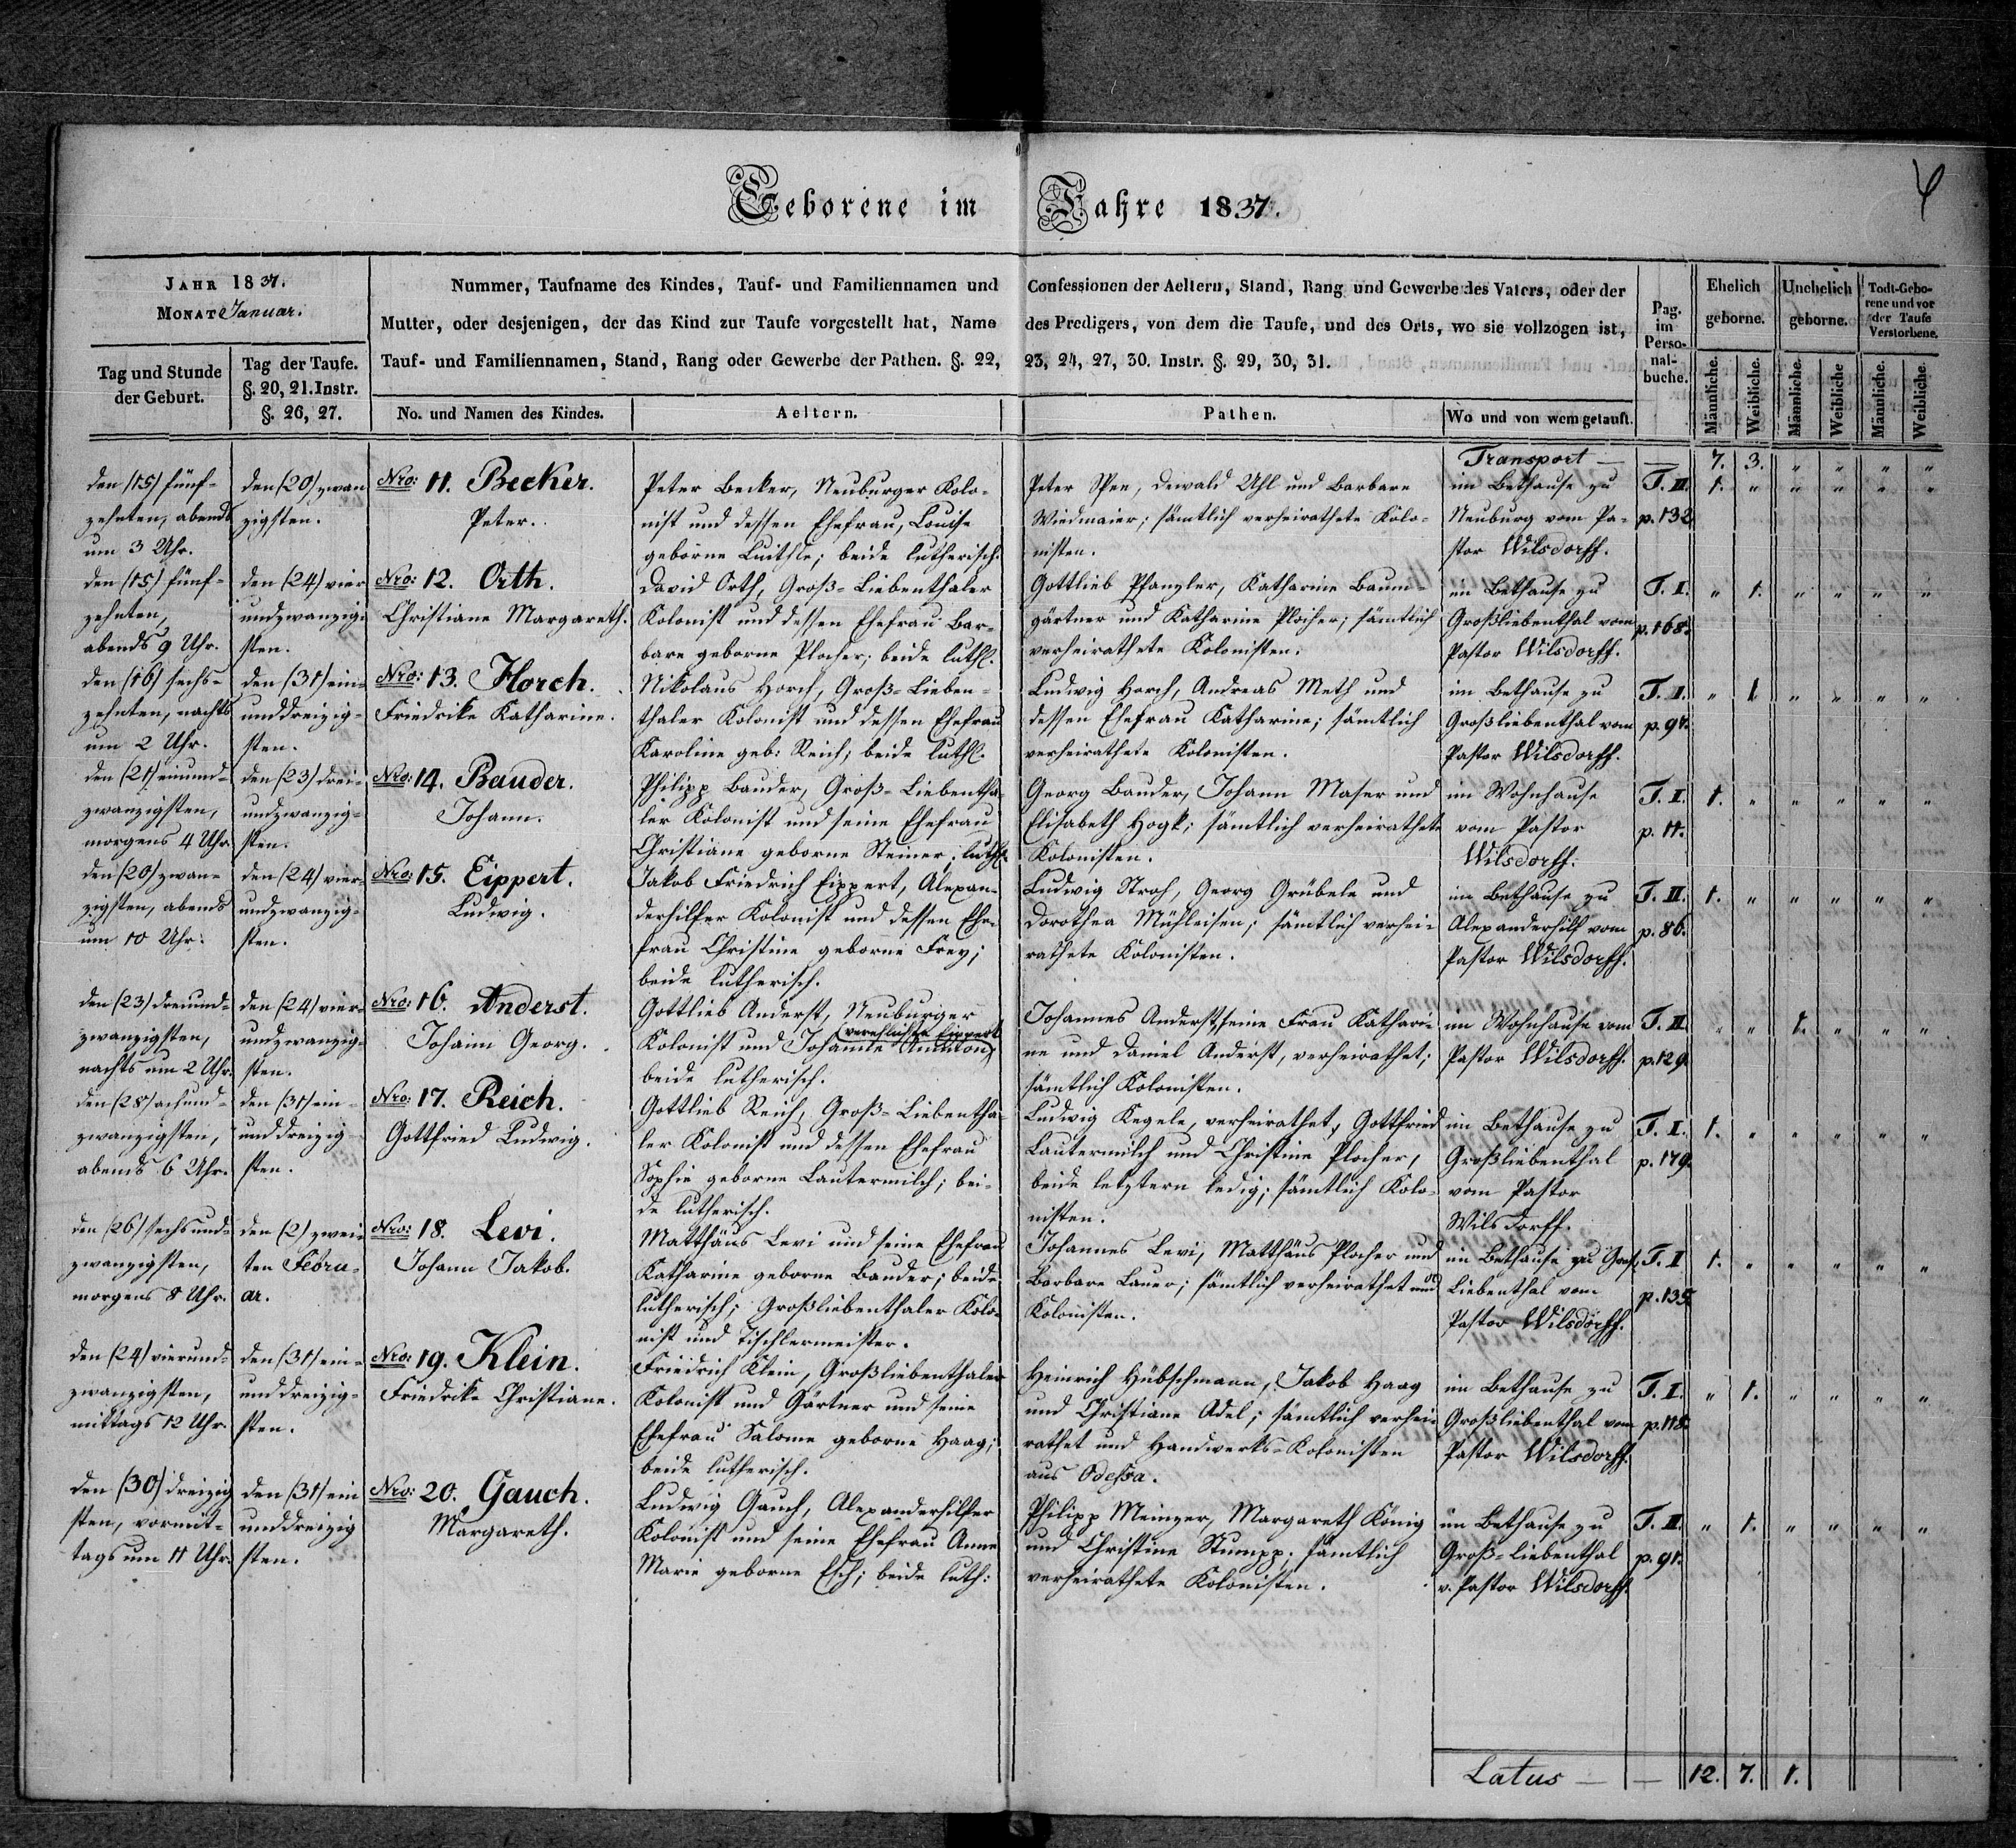 Geborene im Jahre 1837.
JAHR 1837.
MONAT Januar.
Tag und Stunde
der Geburt.
Tag der Taufe.
§. 20, 21. Instr.
§. 26, 27.
Nummer, Taufname des Kindes, Tauf- und Familiennamen und Confessionen der Aeltern, Stand, Rang und Gewerbe des Vaters, oder der
Mutter, oder desjenigen, der das Kind zur Taufe vorgestellt hat, Name des Predigers, von dem die Taufe, und des Orts, wo sie vollzogen ist,
Tauf- und Familiennamen, Stand, Rang oder Gewerbe der Pathen. §. 22, 23, 24, 27, 30. Instr. §. 29, 30, 31.
No. und Namen des Kindes.
Aeltern.
Pathen.
Wo und von wem getauft.
Pag.
im
Perso-
nal-
buche.
Ehelich
geborne.
Unehelich
geborne.
Todt-Gebo-
rene und vor
der Taufe
Verstorbene.
Männliche.
Weibliche.
Männliche.
Weibliche
Männliche.
Weibliche.
Transport — — 7. 3. " " " "
den (15) fünf-
zehnten, abends
um 3 Uhr.
den (20) zwan
zigsten.
Nro: 11. Becker.
Peter.
Peter Becker, Neuburger Kolo-
nist und dessen Ehefrau, Louise
geborne Luithle; beide lutherisch.
Peter Spee, Dewald Uhl und Barbara
Wiedmaier; sämtlich verheirathete Kolo-
nisten.
im Bethause zu
Neuburg vom Pa-
stor Wilsdorff.
T. II.
p. 132
1. " " " " "
den (15) fünf-
zehnten,
abends 9 Uhr.
den (24) vier
undzwanzig-
sten.
Nro: 12. Orth.
Christiane Margareth.
David Orth, Groß-Liebenthaler
Kolonist und dessen Ehefrau Bar-
bara geborne Plocher; beide luth.
Gottlieb Pfanzler, Katharine Baum-
gärtner und Katharine Plocher; sämtlich
verheirathete Kolonisten.
im Bethause zu
Großliebenthal vom
Pastor Wilsdorff.
T. I.
p. 168.
" 1. " " " "
den (16) sechs-
zehnten, nachts
um 2 Uhr.
den (31) ein-
unddreizig-
sten.
Nro: 13. Horch.
Friedrike Katharine.
Nikolaus Horch, Groß-Lieben-
thaler Kolonist und dessen Ehefrau
Karoline geb: Reich; beide luth.
Ludwig Horch, Andreas Meth und
dessen Ehefrau Katharine; sämtlich
verheirathete Kolonisten.
im Bethause zu
Großliebenthal vom
Pastor Wilsdorff.
T. I.
p. 97.
" 1 " " " "
den (21) einund-
zwanzigsten,
morgens 4 Uhr.
den (23) drei-
undzwanzig-
sten.
Nro: 14. Bauder.
Johann.
Philipp Bauder, Groß-Liebentha-
ler Kolonist und seine Ehefrau
Christiane geborne Steiner; luth.
Georg Bauder, Johann Maser und
Elisabeth Hogk; sämtlich verheirathete
Kolonisten.
im Wohnhause
vom Pastor
Wilsdorff.
T. I.
p. 11.
1. " " " " "
den (20) zwan-
zigsten, abends
um 10 Uhr.
den (24) vier-
undzwanzig-
sten.
Nro: 15. Eippert.
Ludwig.
Jakob Friedrich Eippert, Alexan-
derhilfer Kolonist und dessen Ehe-
frau Christine geborne Frey;
beide lutherisch.
Ludwig Stroh, Georg Grübele und
Dorothea Mühleisen; sämtlich verhei-
rathete Kolonisten.
im Bethause zu
Alexanderhilf vom
Pastor Wilsdorff.
T. II.
p. 86.
1. " " " " "
den (23) dreiund-
zwanzigsten,
nachts um 2 Uhr.
den (24) vier-
undzwanzig-
sten.
Nro: 16. Anderst.
Johann Georg.
Gottlieb Anderst, Neuburger
verehlichte Eippert
Kolonist und Johanne Ammon;
beide lutherisch.
Johannes Anderst, seine Frau Kathari-
ne und Daniel Anderst, verheirathet;
sämtlich Kolonisten.
im Wohnhause vom
Pastor Wilsdorff.
T. II.
p. 129.
" " 1. " " "
den (28) achund-
zwanzigsten,
abends 6 Uhr.
den (31) ein-
unddreizig
sten.
Nro: 17. Reich.
Gottfried Ludwig.
Gottlieb Reich, Groß-Liebentha-
ler Kolonist und dessen Ehefrau
Sophie geborne Lautermilch; bei-
de lutherisch.
Ludwig Kegele, verheirathet, Gottfried
Lautermilch und Christine Plocher,
beide letztern ledig; sämtlich Kolo-
nisten.
im Bethause zu
Großliebenthal
vom Pastor
Wilsdorff.
T. I.
p. 179.
1. " " " " "
den (26) sechsund-
zwanzigsten,
morgens 8 Uhr.
den (2) zwei-
ten Febru-
ar.
Nro: 18. Levi.
Johann Jakob.
Matthäus Levi und seine Ehefrau
Katharine geborne Bauder; beide
lutherisch; Großliebenthaler Kolo-
nist und Tischlermeister.
Johannes Levi, Matthäus Plocher und
Barbara Lauer; sämtlich verheirathet und
Kolonisten.
im Bethause zu Groß-
Liebenthal vom
Pastor Wilsdorff.
T. I
p. 135.
1. " " " " "
den (24) vierund-
zwanzigsten,
mittags 12 Uhr.
den (31) ein-
unddreizig-
sten.
Nro: 19. Klein.
Friedrike Christiane.
Friedrich Klein, Großliebenthaler
Kolonist und Gärtner und seine
Ehefrau Salome geborne Haag;
beide lutherisch.
Heinrich Hübschmann, Jakob Haag
und Christiane Adel; sämtlich verhei-
rathet und Handwerks-Kolonisten
aus Odessa.
im Bethause zu
Großliebenthal vom
Pastor Wilsdorff.
T. I.
p. 118.
" 1. " " " "
den (30) dreizig
sten, vormit-
tags um 11 Uhr.
den (31) ein
unddreizig
sten.
Nro: 20. Gauch.
Margareth.
Ludwig Gauch, Alexanderhilfer
Kolonist und seine Ehefrau Anne
Marie geborne Esch; beide luth:
Philipp Meinzer, Margareth König
und Christine Stumpp; sämtlich
verheirathete Kolonisten.
im Bethause zu
Groß-liebenthal
v. Pastor Wilsdorff.
T. II.
p. 91.
" 1. " " " "
Latus — — 12. 7. 1.